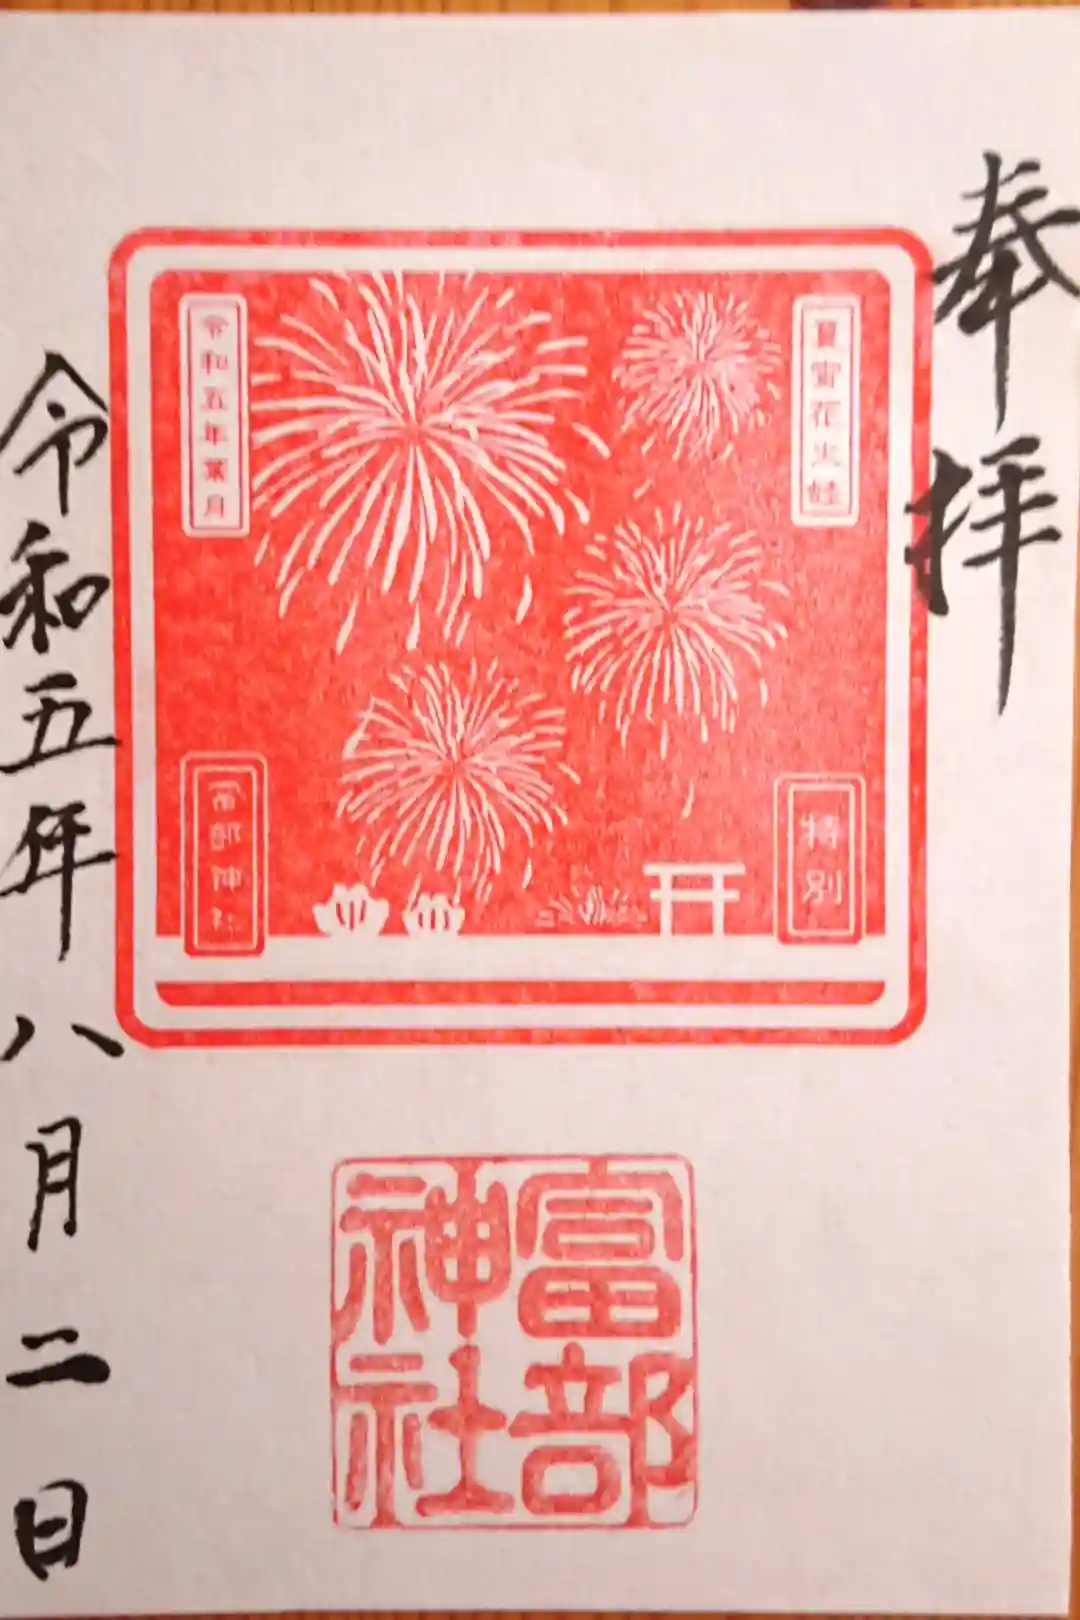 奉拝
夏宵花火蛙
特別
令和五年葉月
冨部神社
富部神社
令和五年八月二日